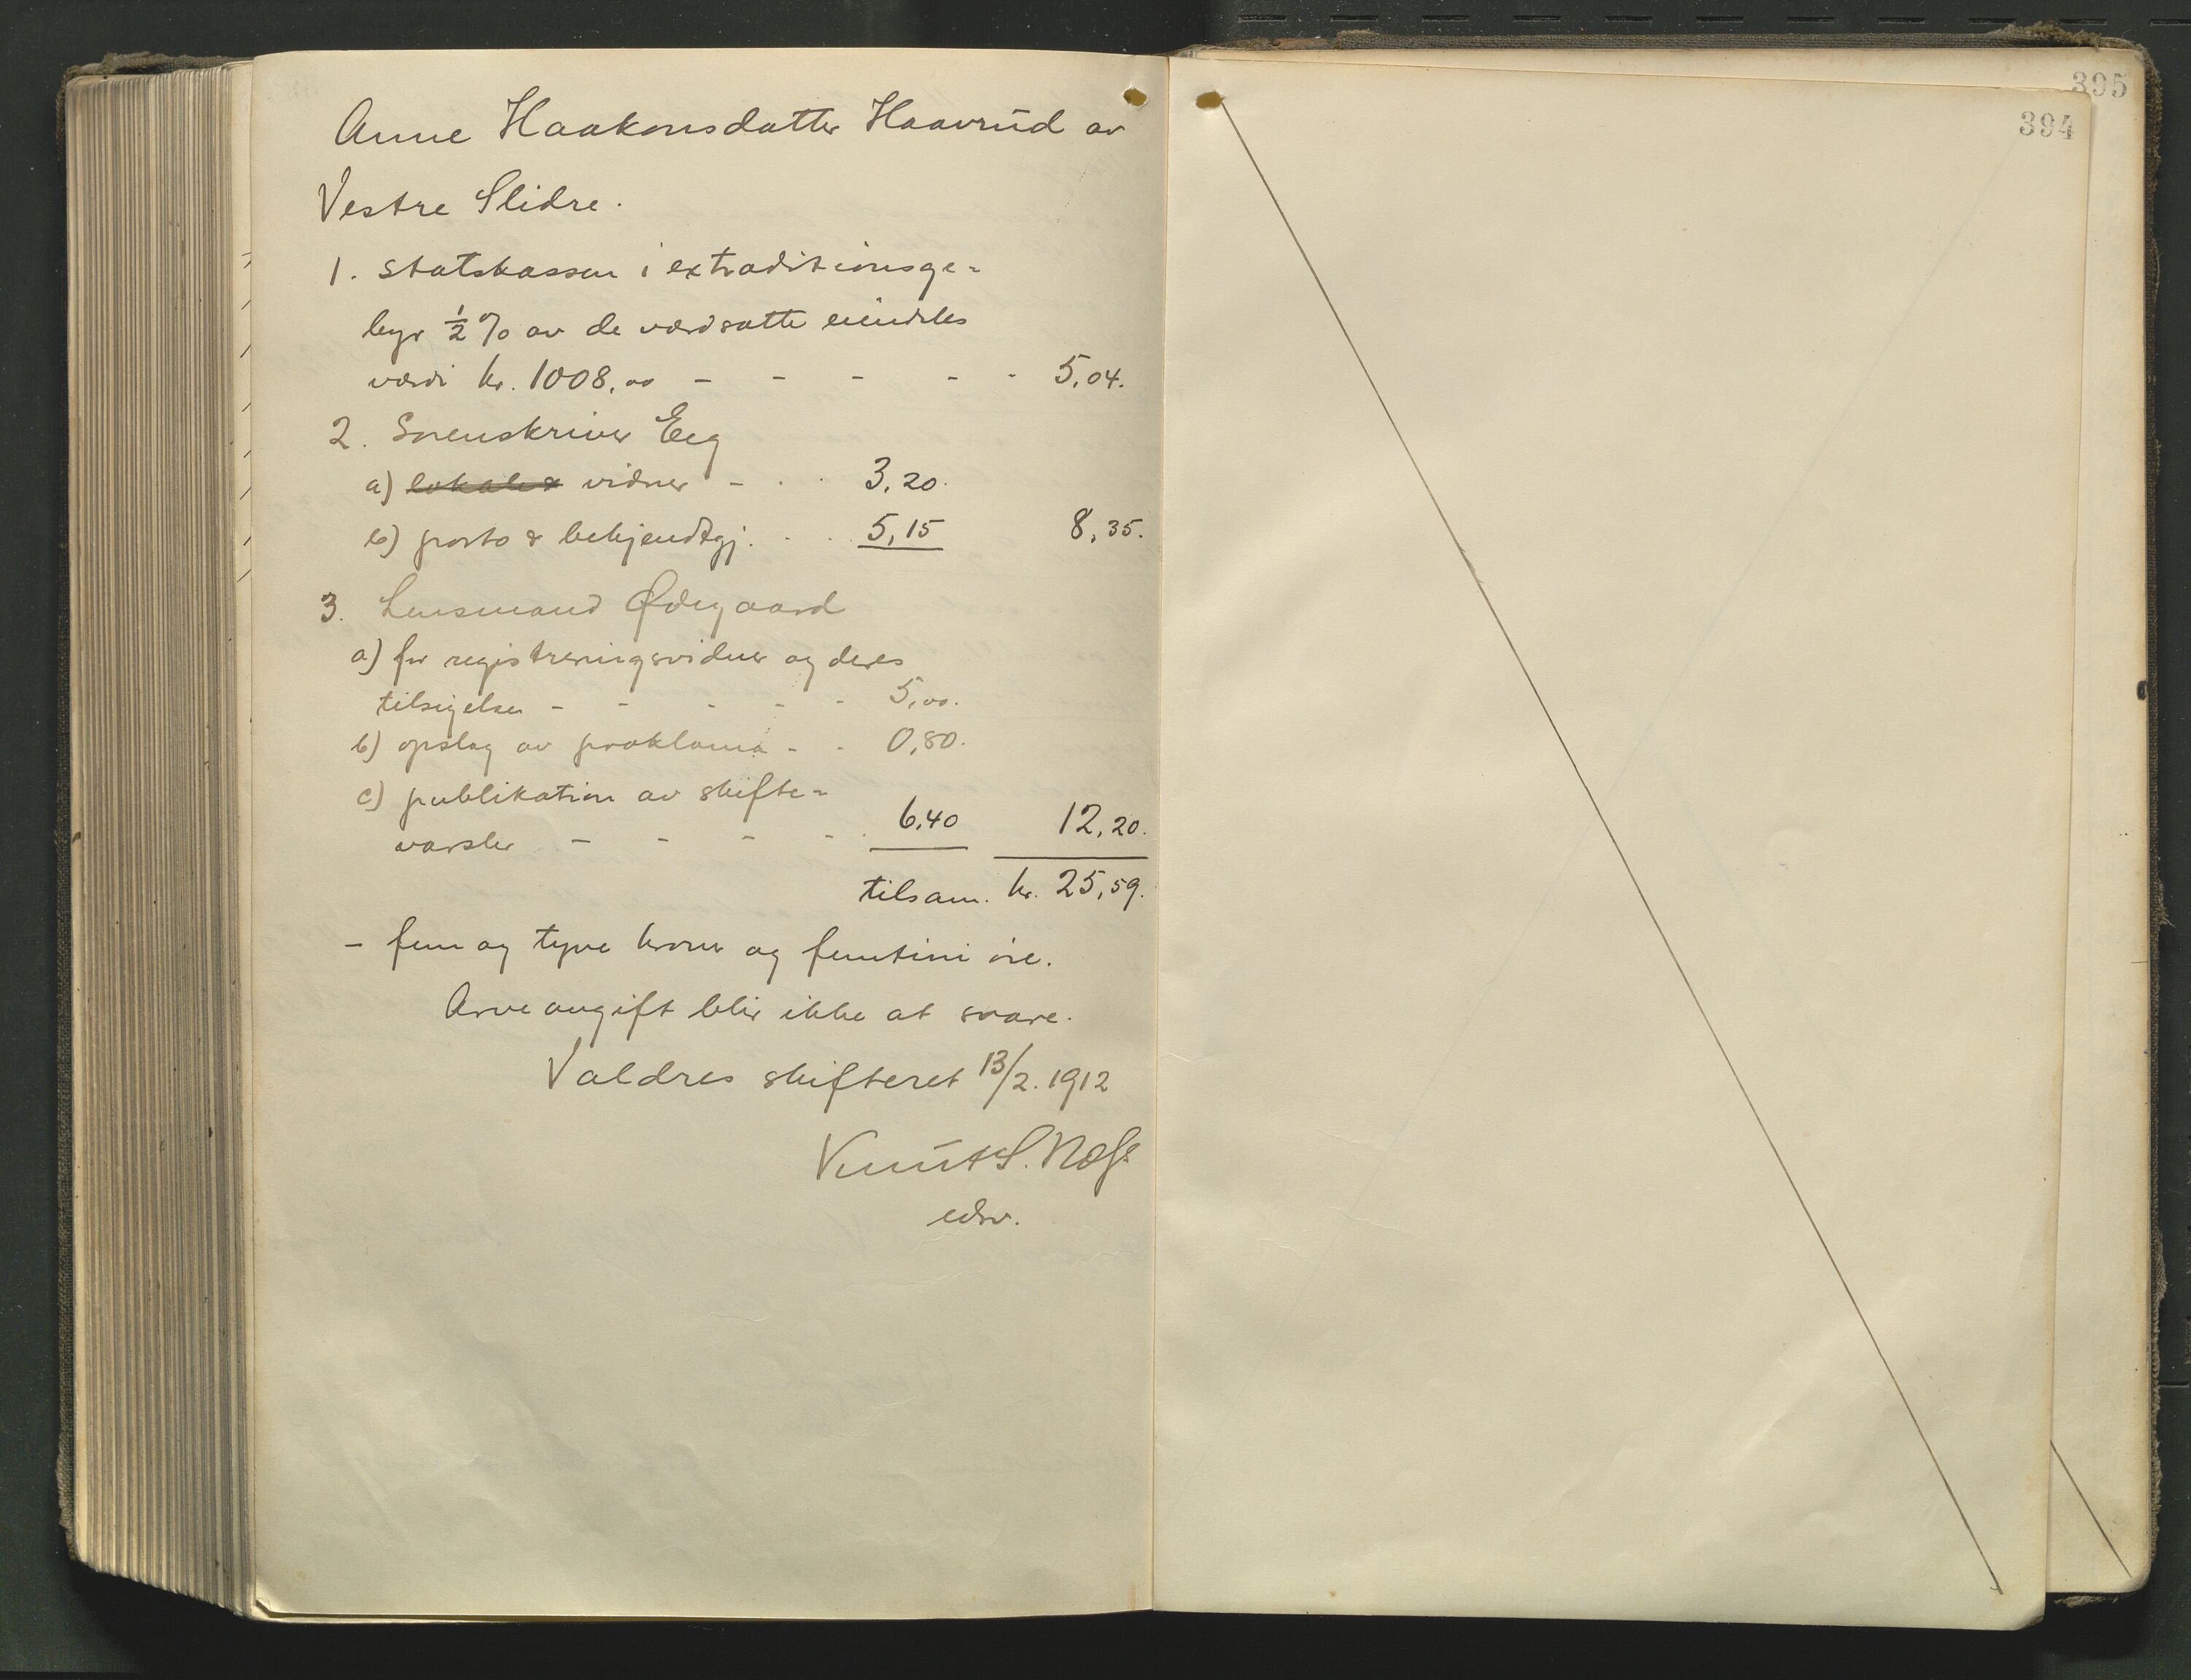 Anne Haakonsdatter Haavrud av
Vestre Slidre.
1. statskassen i extraditionsge=
byr ½ % av de værdsatte eiendeles
værdi kr. 1008,00 - - - - - 5,04.
2. Sorenskriver Eeg
a) lokale & vidner - . . 3,20.
b) porto & bekjendtgj. . . 5,15 8,35.
3. Lensmand Ødegaard
a) for registreringsvidner og deres
tilsigelse - - - - - 5,00.
b) opslag av proklama - - 0,80.
c) publikation av skifte=
varsler - - - - . 6,40 12,20.
tilsam. kr. 25,59.
- fem og tyve kroner og femtini øre.
Arveavgift blir ikke at svare.
Valdres skifteret 13/2. 1912
Knut S. Næss
edsv.
395
394